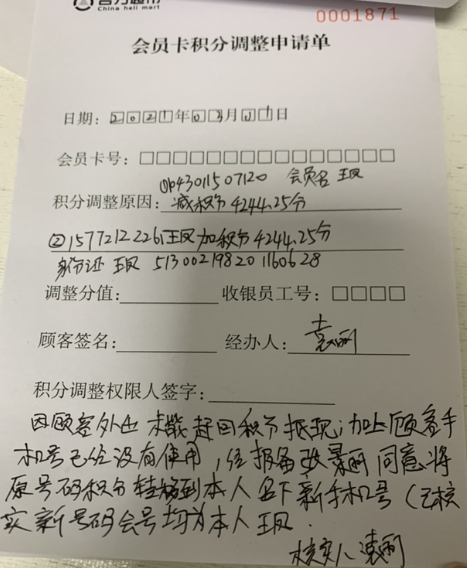 China heli mart
0001871
会员卡积分调整申请单
日期：2021年03月01日
会员卡号：□□□□□□□□□□□□□□□
043011507120 会员名 王凤
积分调整原因：减积分4244.25分
②15772122261王凤加积分4244.25分
身份证 王凤 513002198201160628
调整分值： 收银员工号：□□□□
顾客签名： 经办人：袁丽
积分调整权限人签字：
因顾客外出 未能赶回积分抵现；加上顾客手
机号已经没有使用，经报备张景丽同意将
原号码积分转移到本人名下新手机号（已核
实新号码会号均为本人王凤．
核实人 袁丽